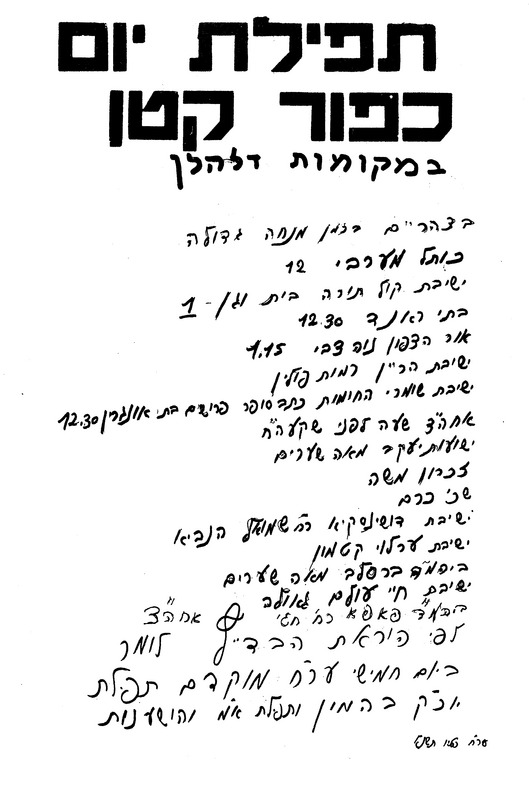 תפילת יום
כפור קטן
במקומות דלהלן
בצהריים בזמן מנחה גדולה
כותל מערבי 12
ישיבת קול תורה בית וגן - 1
בתי ראנד 12.30
אור הצפון נוה צבי 1.15
ישיבת הר"ן רמות פולין
ישיבת שומרי החומות כתב סופר פרושים בתי אונגרין 12.30
אחה"צ שעה לפני שקעה"ח
ישועות יעקב מאה שערים
זכרון משה
שכ' כרם
ישיבת דושינסקיא רח' שמואל הנביא
ישיבת ערלוי קטמון
ביהמ"ד ברסלב מאה שערים
ישיבת חיי עולם גאולה
בהמ"ד פאפא רח' חגי אחה"צ
לפי הוראת הבד"ץ לומר
ביום חמישי ער"ח מוקדם תפילת
יוכ"ק בהמין ותפלת א"מ והושענות
ער"ח